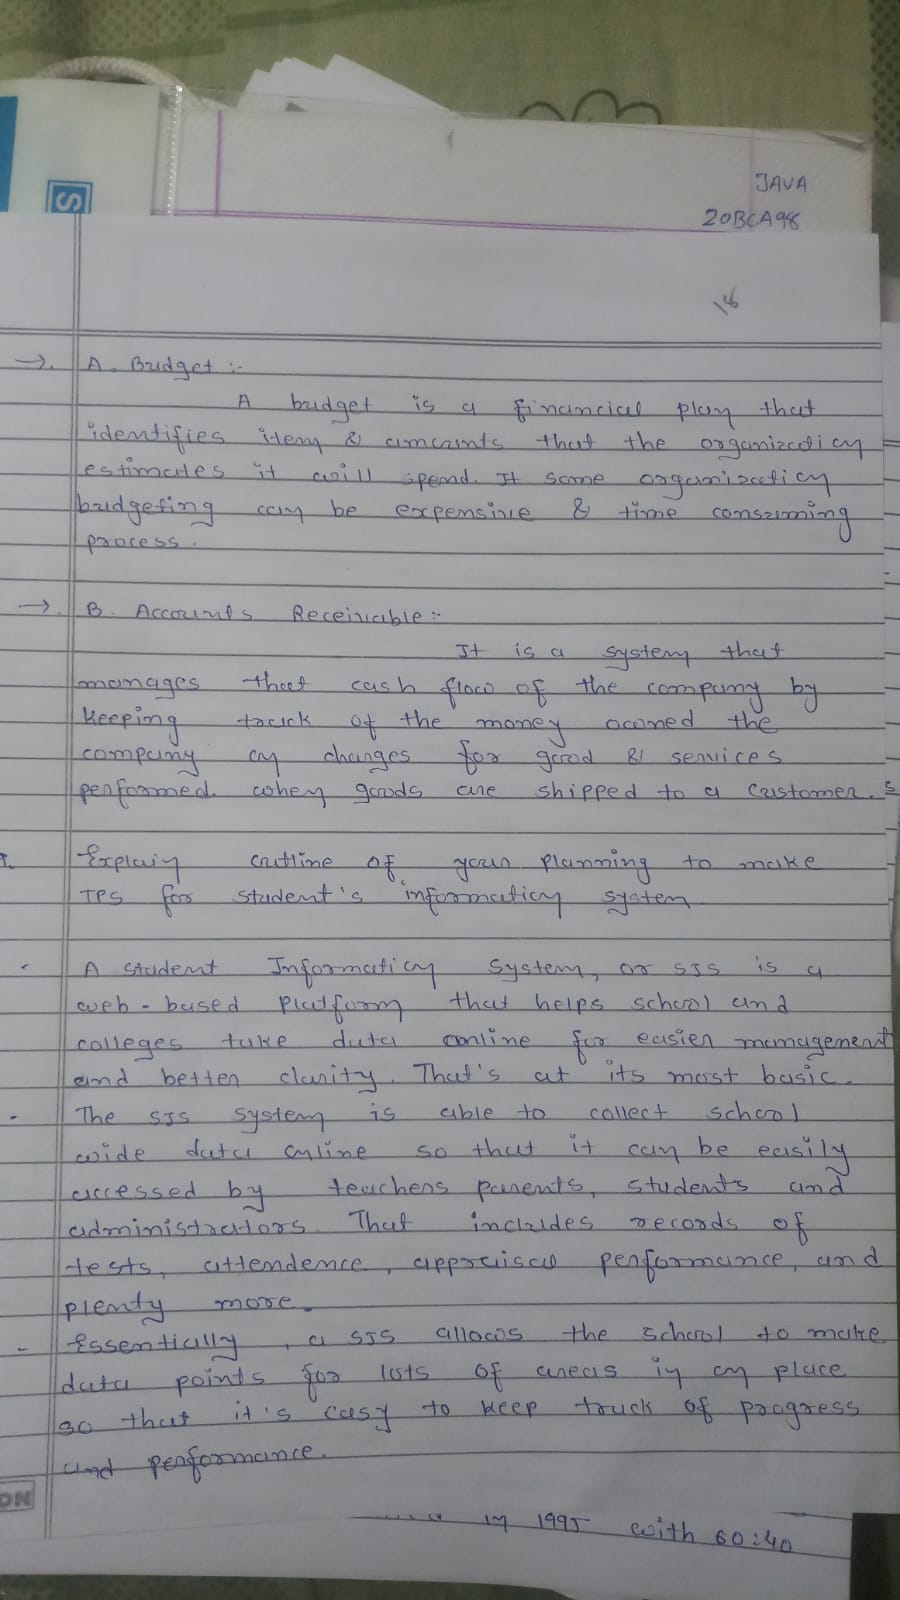 JAVA
20BCA98
18
→. A. Budget :-
A budget is a financial plan that
identifies item & amcaints that the organization
estimates it will spend. It some organization
budgeting can be expensive & time consuming
process.
→. B. Accounts Receivable :-
It is a system that
manages that cash flow of the company by
keeping track of the money owned the
company on changes for good & services
performed. when goods are shipped to a customer.
Explain outline of your planning to make
TPS for student's information system
- A student Information System, or SIS is a
web-based platform that helps school and
colleges take data online for easier management
and better clarity. That's at its most basic.
- The SIS system is able to collect school
wide data online so that it can be easily
accessed by teachers parents, students and
administrators. That includes records of
tests, attendence, appraisal performance, and
plenty more.
- Essentially, a SIS allows the school to make
data points for lots of areas in on place
so that it's easy to keep track of progress
and performance.
in 1995 with 60:40